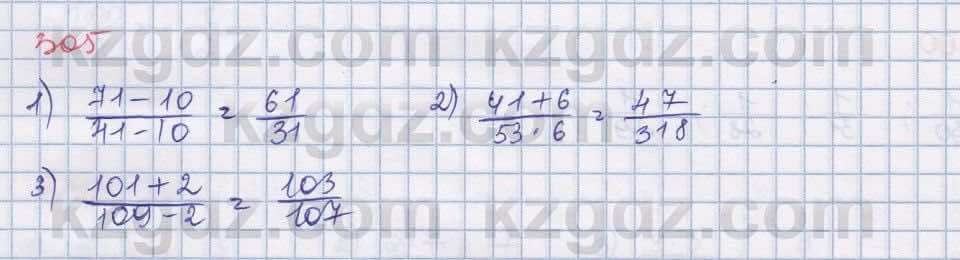 305
1) (71-10)/(41-10) = 61/31 2) (41+6)/(53·6) = 47/318
3) (101+2)/(109-2) = 103/107
kzgdz.com kzgdz.com
kzgdz.com
kzgdz.com kzgdz.com